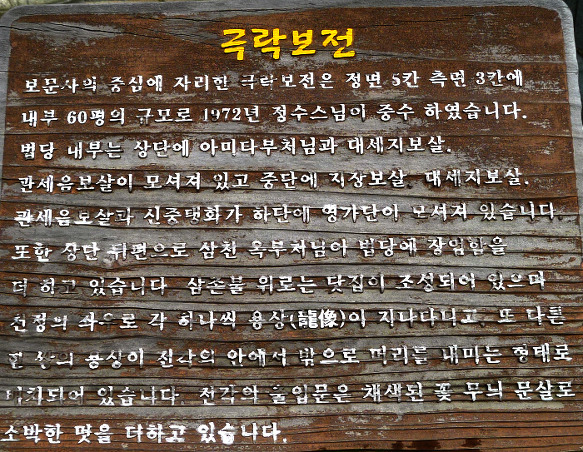 극락보전
보문사의 중심에 자리한 극락보전은 정면 5칸 측면 3칸에
내부 60평의 규모로 1972년 정수스님이 중수 하였습니다.
법당 내부는 상단에 아미타부처님과 대세지보살.
관세음보살이 모셔져 있고 중단에 지장보살. 대세지보살.
관세음보살과 신중탱화가 하단에 영가단이 모셔져 있습니다.
또한 상단 뒤편으로 삼천 옥부처님이 법당에 장엄함을
더 하고 있습니다. 삼존불 위로는 닷집이 조성되어 있으며
천정의 좌우로 각 하나씩 용상(龍像)이 지나다니고, 또 다른
한 쌍의 용상이 전각의 안에서 밖으로 머리를 내미는 형태로
배치되어 있습니다. 전각의 출입문은 채색된 꽃 무늬 문살로
소박한 멋을 더하고 있습니다.